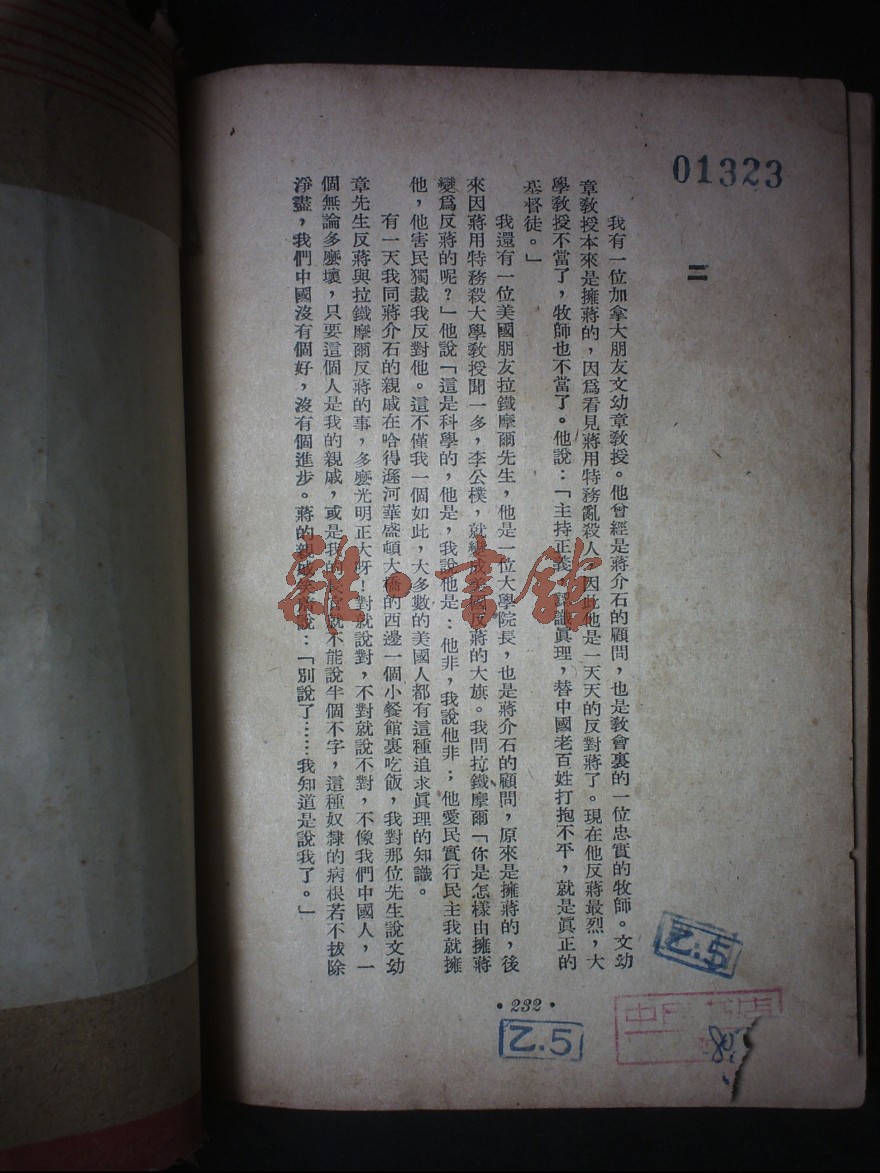 01323
二
我有一位加拿大朋友文幼章教授。他曾經是蔣介石的顧問，也是教會裏的一位忠實的牧師。文幼
章教授本來是擁蔣的，因爲看見蔣用特務亂殺人，因此他是一天天的反對蔣了。現在他反蔣最烈，大
學敎授不當了，牧師也不當了。他說：「主持正義，認識眞理，替中國老百姓打抱不平，就是眞正的
基督徒。」
我還有一位美國朋友拉鐵摩爾先生，他是一位大學院長，也是蔣介石的顧問，原來是擁蔣的，後
來因蔣用特務殺大學敎授聞一多，李公樸，就變成美國反蔣的大旗。我問拉鐵摩爾「你是怎樣由擁蔣
變爲反蔣的呢？」他說「這是科學的，他是，我說他是：他非，我說他非；他愛民實行民主我就擁
他，他害民獨裁我反對他。這不僅我一個如此，大多數的美國人都有這種追求眞理的知識。
有一天我同蔣介石的親戚在哈得遜河華盛頓大橋的西邊一個小餐館裏吃飯，我對那位先生說文幼
章先生反蔣與拉鐵摩爾反蔣的事，多麼光明正大呀！對就說對，不對就說不對，不像我們中國人，一
個無論多麼壞，只要這個人是我的親戚，或是我的長官就不能說半個不字，這種奴隸的病根若不拔除
淨盡，我們中國沒有個好，沒有個進步。蔣的親戚說：「別說了……我知道是說我了。」
•232•
乙.5
乙.5
雜·書館